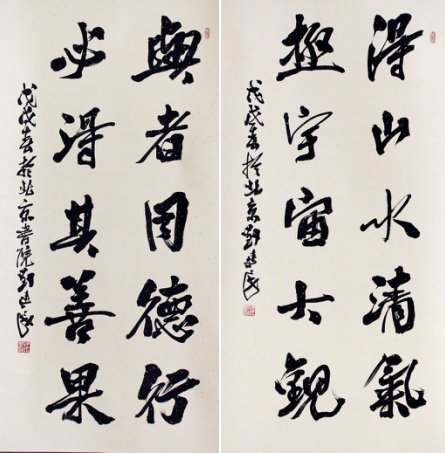 與者同德行
必得其善果
戊戌春於北京書院
得山水清氣
極宇宙大觀
戊戌春於北京